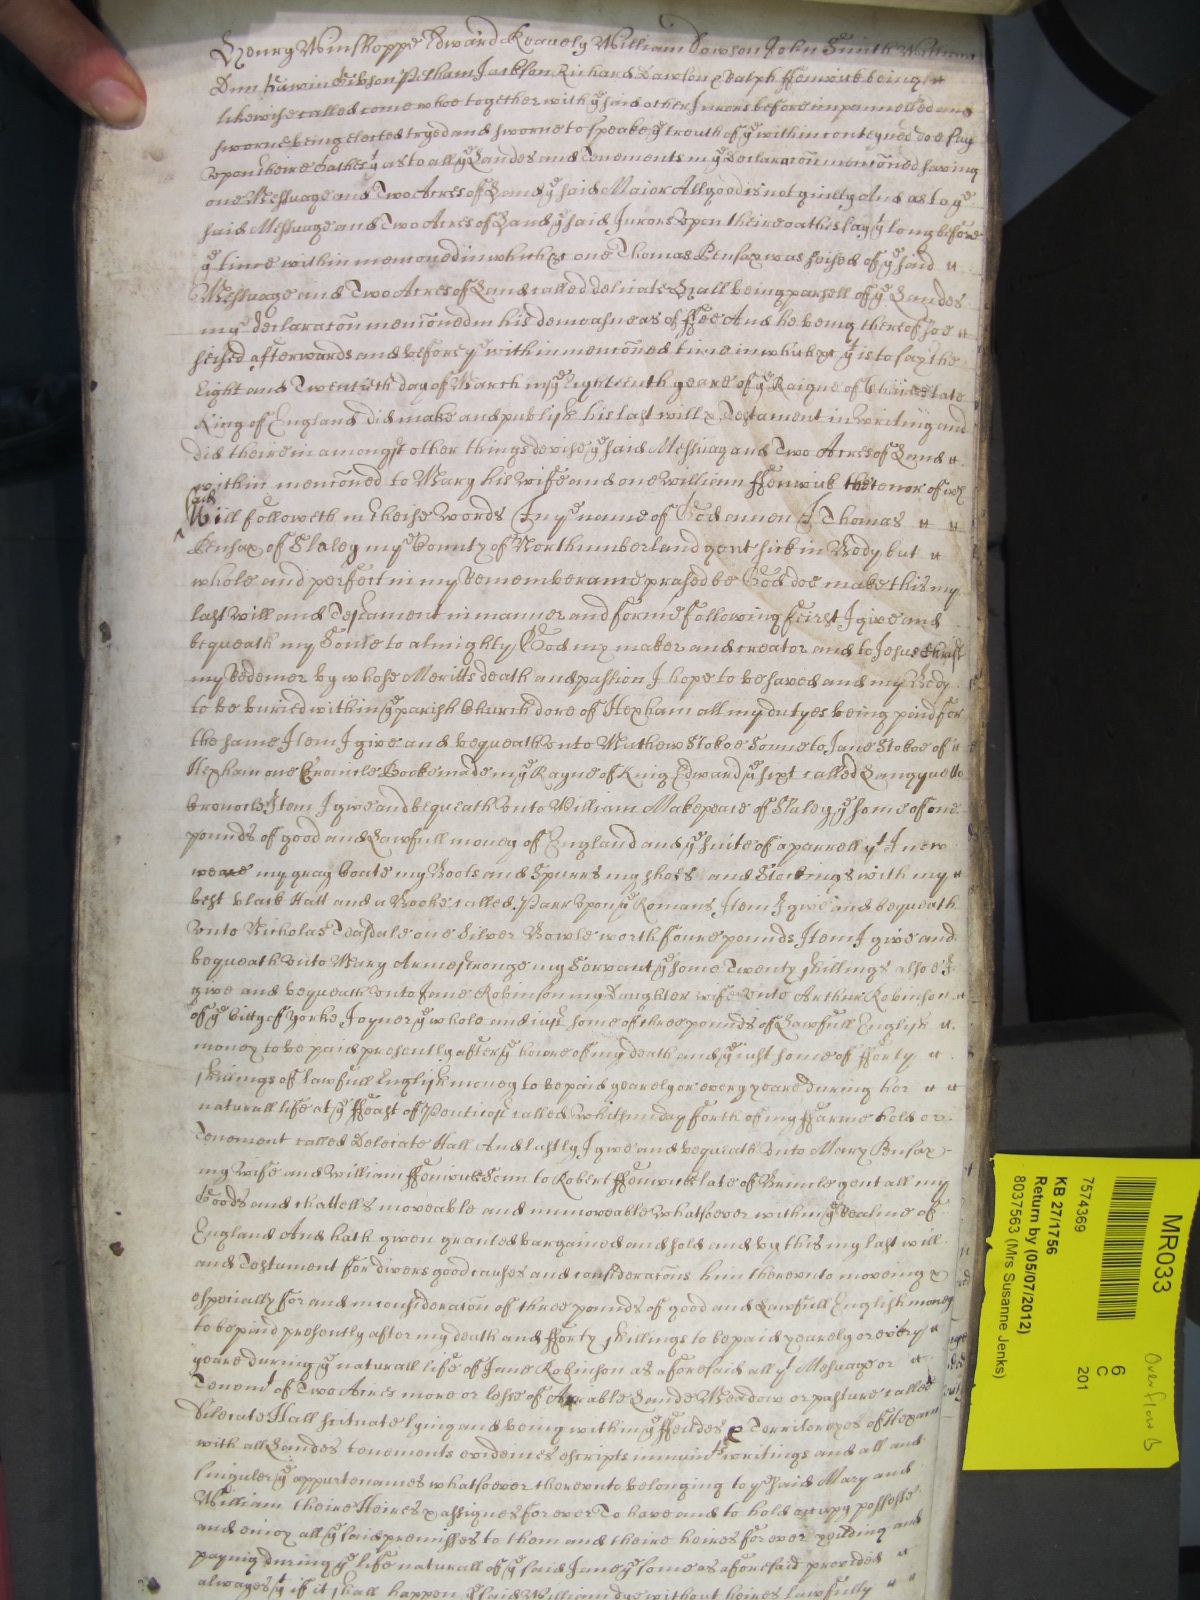 Henry Winshoppe Edward Kearely William Dowson John Smith William
Dinn Gawin Gibson William Jackson Richard Dawson & Ralph ffenwick being
likewise called come whoe together with ye said other Jurors before impannelled and
sworne being elected tryed and sworne to speake ye trouth of ye within conteyned doe say
vpon theire Oathes yt as to all ye Landes and Tenements in ye Declaracon menconed saving
one Messuage and Two Acres of Land ye said Maior Allgood is not guilty And as to ye
said Messuage and Two Acres of Land ye said Jurors vpon theire oathes say yt long before
ye time within menconed in which &c one Thomas Pensax was seised of ye said
Messuage and Two Acres of Land called delicate Hall being parsell of ye Landes
in ye declaracon menconed in his demeasne as of ffee And he being thereof soe
seised afterwards and before ye within menconed time in which &c yt is to say the
Eight and Twentieth day of March in ye Eighteenth yeare of ye Raigne of Charles late
King of England did make and publish his last will & Testament in Writing and
did therein amongst other things devise ye said Messuag and Two Acres of Land
within menconed to Mary his Wife and one William ffenwick the tenor of wch
said
Will followeth in theise Words In ye name of God amen I Thomas
Pensax of Slaley in ye County of Northumberland gent sick in Body but
whole and perfect in my Rememberance praised be God doe make this my
last Will and Testament in manner and forme following ffirst I give and
bequeath my Soule to almighty God my maker and creator and to Jesus Christ
my Redemer by whose Meritts death and passion I hope to be saved and my Body
to be buried within ye parish Church dore of Hexham all my dutyes being paid for
the same Item I give and bequeath vnto Mathew Stoboe Sonne to Jane Stoboe of
Hexham one Cronicle Booke made in ye Rayne of King Edward ye sixt called Langquetts
Cronocle Item I give and bequeath vnto William Makepeace of Slaley ye some of one
pounds of good and Lawfull money of England and ye suite of aparrell yt I now
weare my gray Coate my Boots and Spurrs my shoes and Stockings with my
best black Hatt and a Booke called Parr vpon ye Romans Item I give and bequeath
vnto Nicholas Teasdale one Silver Bowle worth foure pounds Item I give and
bequeath vnto Mary Armestronge my Servant ye some Twenty shillings alsoe I
give and bequeath vnto Jane Robinson my Daughter wife vnto Arthur Robinson
of ye Citty of Yorke Joyner ye whole and iust some of three pounds of Lawfull English
money to be paid presently after ye howre of my death and ye iust some of fforty
shillings of lawfull English money to be paid yearely or every yeare during her
naturall life at ye ffeast of Penticost called Whitsunday forth of my ffarme hold or
Tenement called Delicate Hall And lastly I give and bequeath vnto Mary Pensax
my Wife and William ffenwick Sonn to Robert ffenwick late of gent all my
Goods and chattells moveable and immoveable whatsoever within ye Realme of
England And hath given granted bargained and sold and by this my last will
and Testament for divers good causes and consideratons him therevnto moveing &
especially for and in consideraton of three pounds of good and Lawfull English money
to be paid presently after my death and fforty shillings to be paid yearely or every
yeare during ye naturall life of Jane Robinson as aforesaid all yt Messuage or
Tenemt of Two Acres more or lesse of Arrable Lande Meadow or pasture called
Dilicate Hall scituate lying and being within ye ffeildes & Territoryes of Hexam
with all Landes tenements evidences escripts minumts writings and all and
singuler ye appurtenances whatsoever therevnto belonging to ye said Mary and
William theire Heires & assignes for ever To have and to hold occupy possesse
and enioy all ye said premisses to them and theire heires for ever yeilding and
paying during ye life naturall of ye said Jane ye some as aforesaid provided
alwayes yt if it shall happen ye said William dye without heires lawfully
MR033
6
C
201
7574369
KB 27/1756
Return by (05/07/2012)
8037563 (Mrs Susanne Jenks)
Overflow B